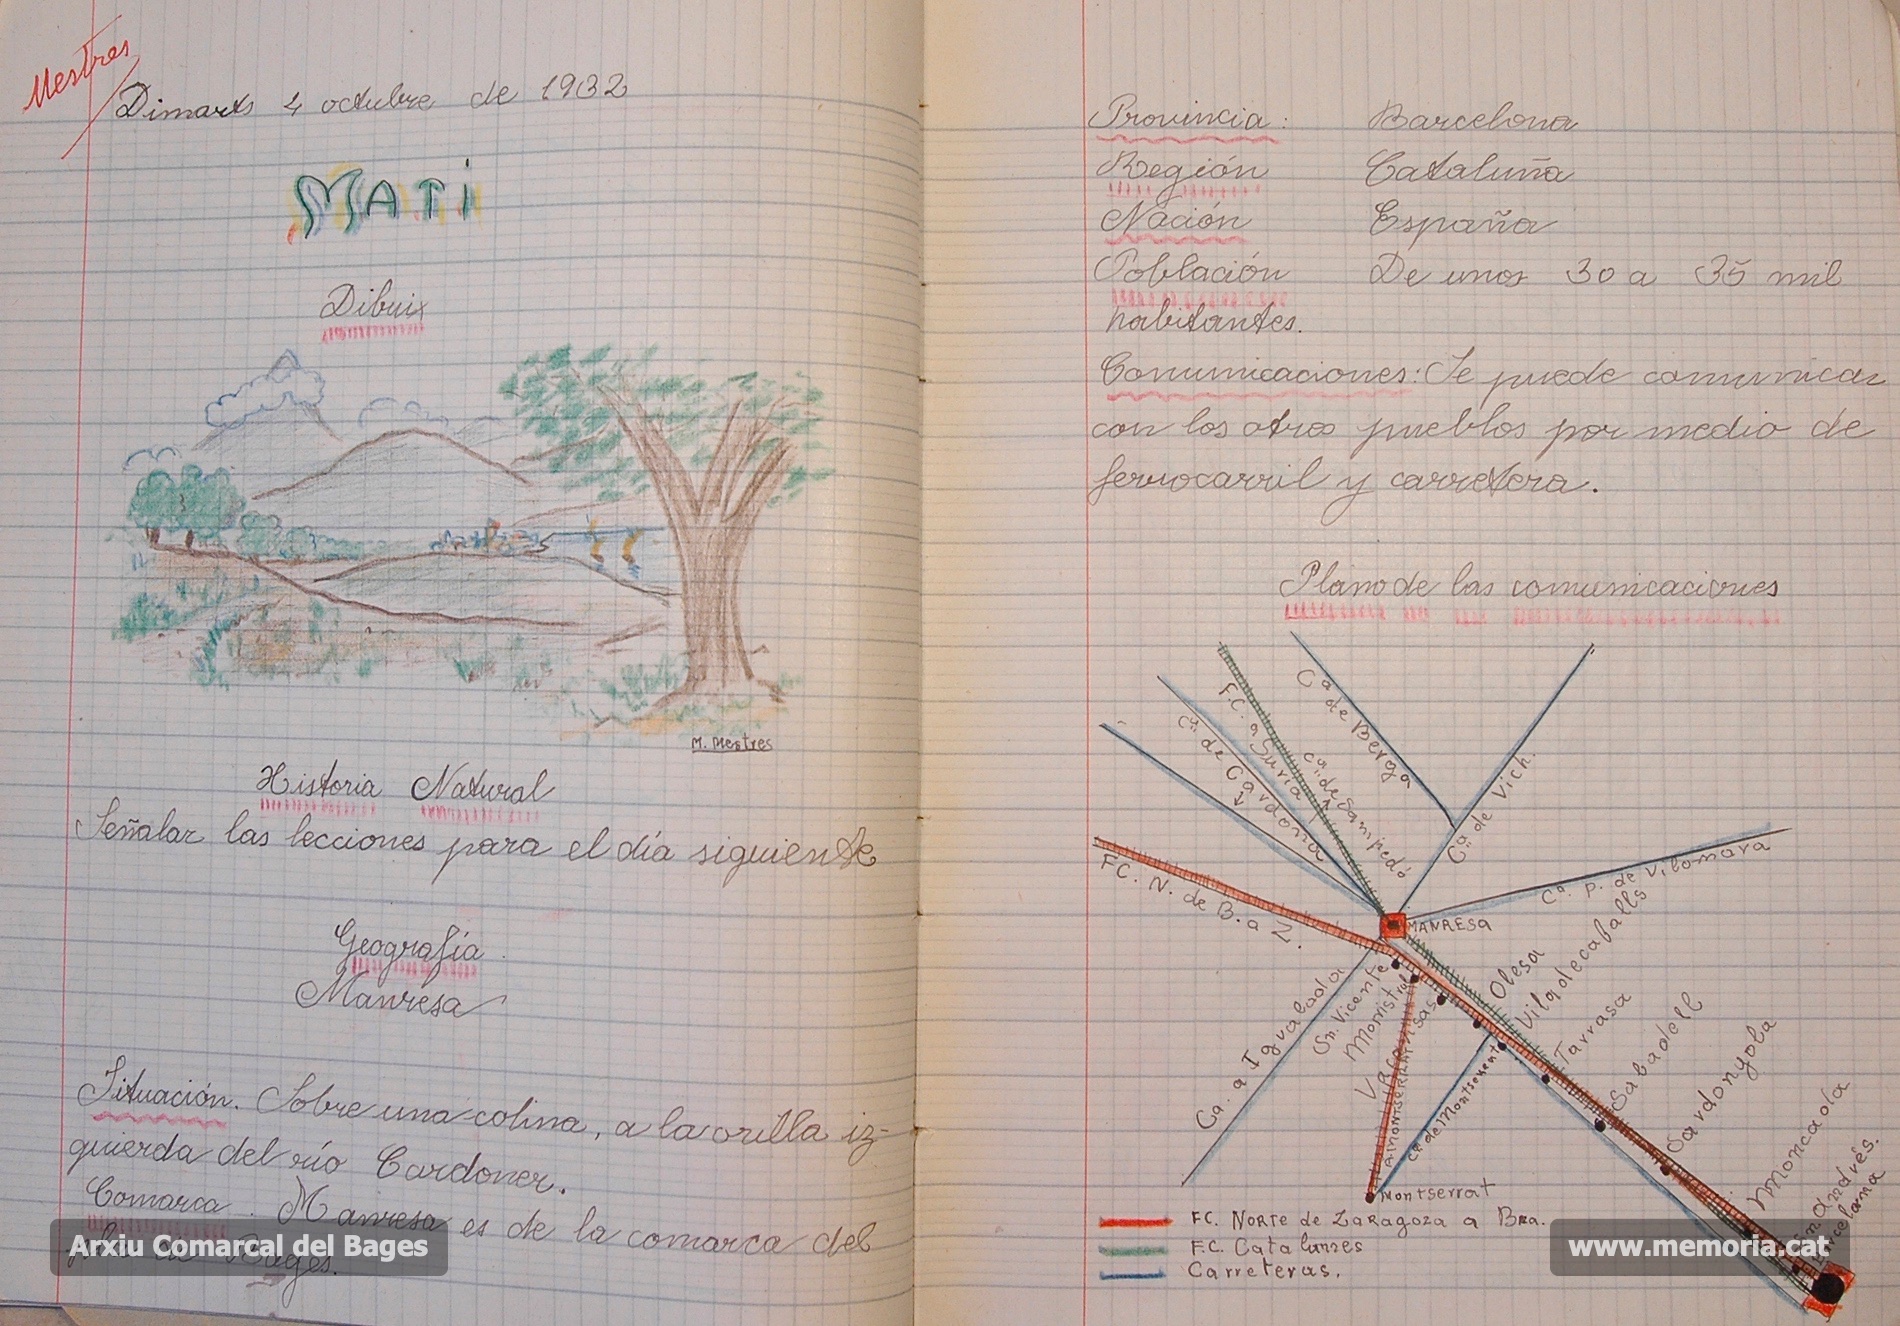 Mestres
Dimarts 4 octubre de 1932
MATI
Dibuix
M. Mestres
Historia Natural
Señalar las lecciones para el día siguiente
Geografía.
Manresa
Situación. Sobre una colina, a la orilla iz-
quierda del río Cardoner.
Comarca. Manresa es de la comarca del
Bages.
Arxiu Comarcal del Bages
Provincia: Barcelona
Región Cataluña
Nación España
Población De unos 30 a 35 mil
habitantes.
Comunicaciones: Se puede comunicar
con los otros pueblos por medio de
ferrocarril y carretera.
Plano de las comunicaciones
Cª de Berga
F.C. a Suria
Cª de Cardona
Cª de Sampedó
Cª de Vich.
FC. N. de B. a Z.
Cª. P. de Vilomara
MANRESA
Ca. a Igualada
Sn. Vicente
Monistrol
Olesa
Viladecaballs
Tarrasa
Sabadell
Sardonyola
Moncada
Cª de Montserrat
Montserrat
FC. NORTE de Zaragoza a Bna.
F.C. Catalunes
Carreteras.
www.memoria.cat